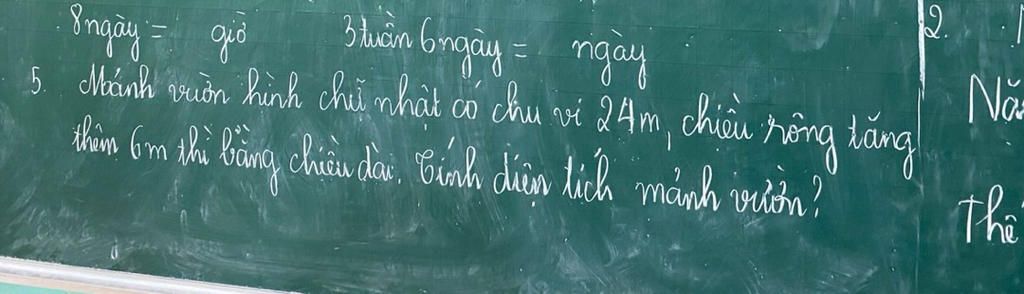 8ngày = giờ 3 tuần 6ngày = ngày
5. Mảnh vườn hình chữ nhật có chu vi 24m, chiều rộng tăng
thêm 6m thì bằng chiều dài. Tính diện tích mảnh vườn?
2.
Thế